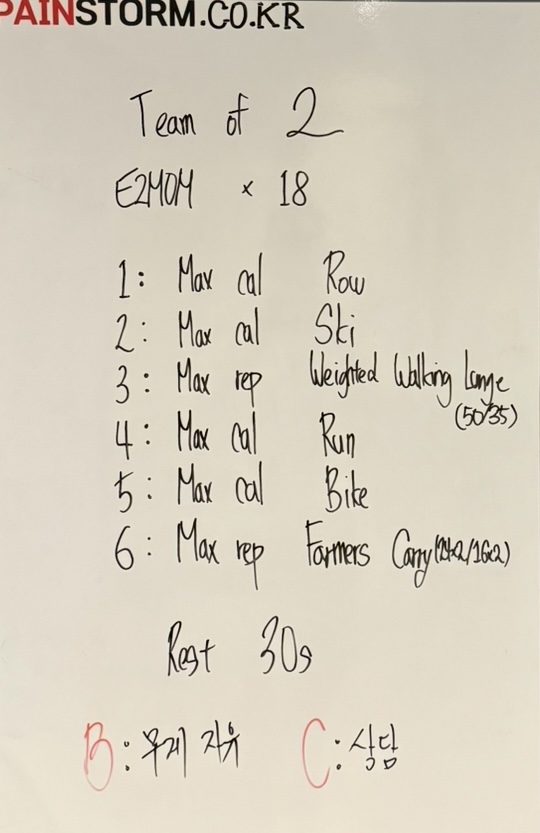 PAINSTORM.CO.KR
Team of 2
E2MOM × 18
1: Max cal Row
2: Max cal Ski
3: Max rep Weighted Walking Lunge
(50/35)
4: Max cal Run
5: Max cal Bike
6: Max rep Farmers Carry (24×2/16×2)
Rest 30s
B: 무게 자유 C: 상담